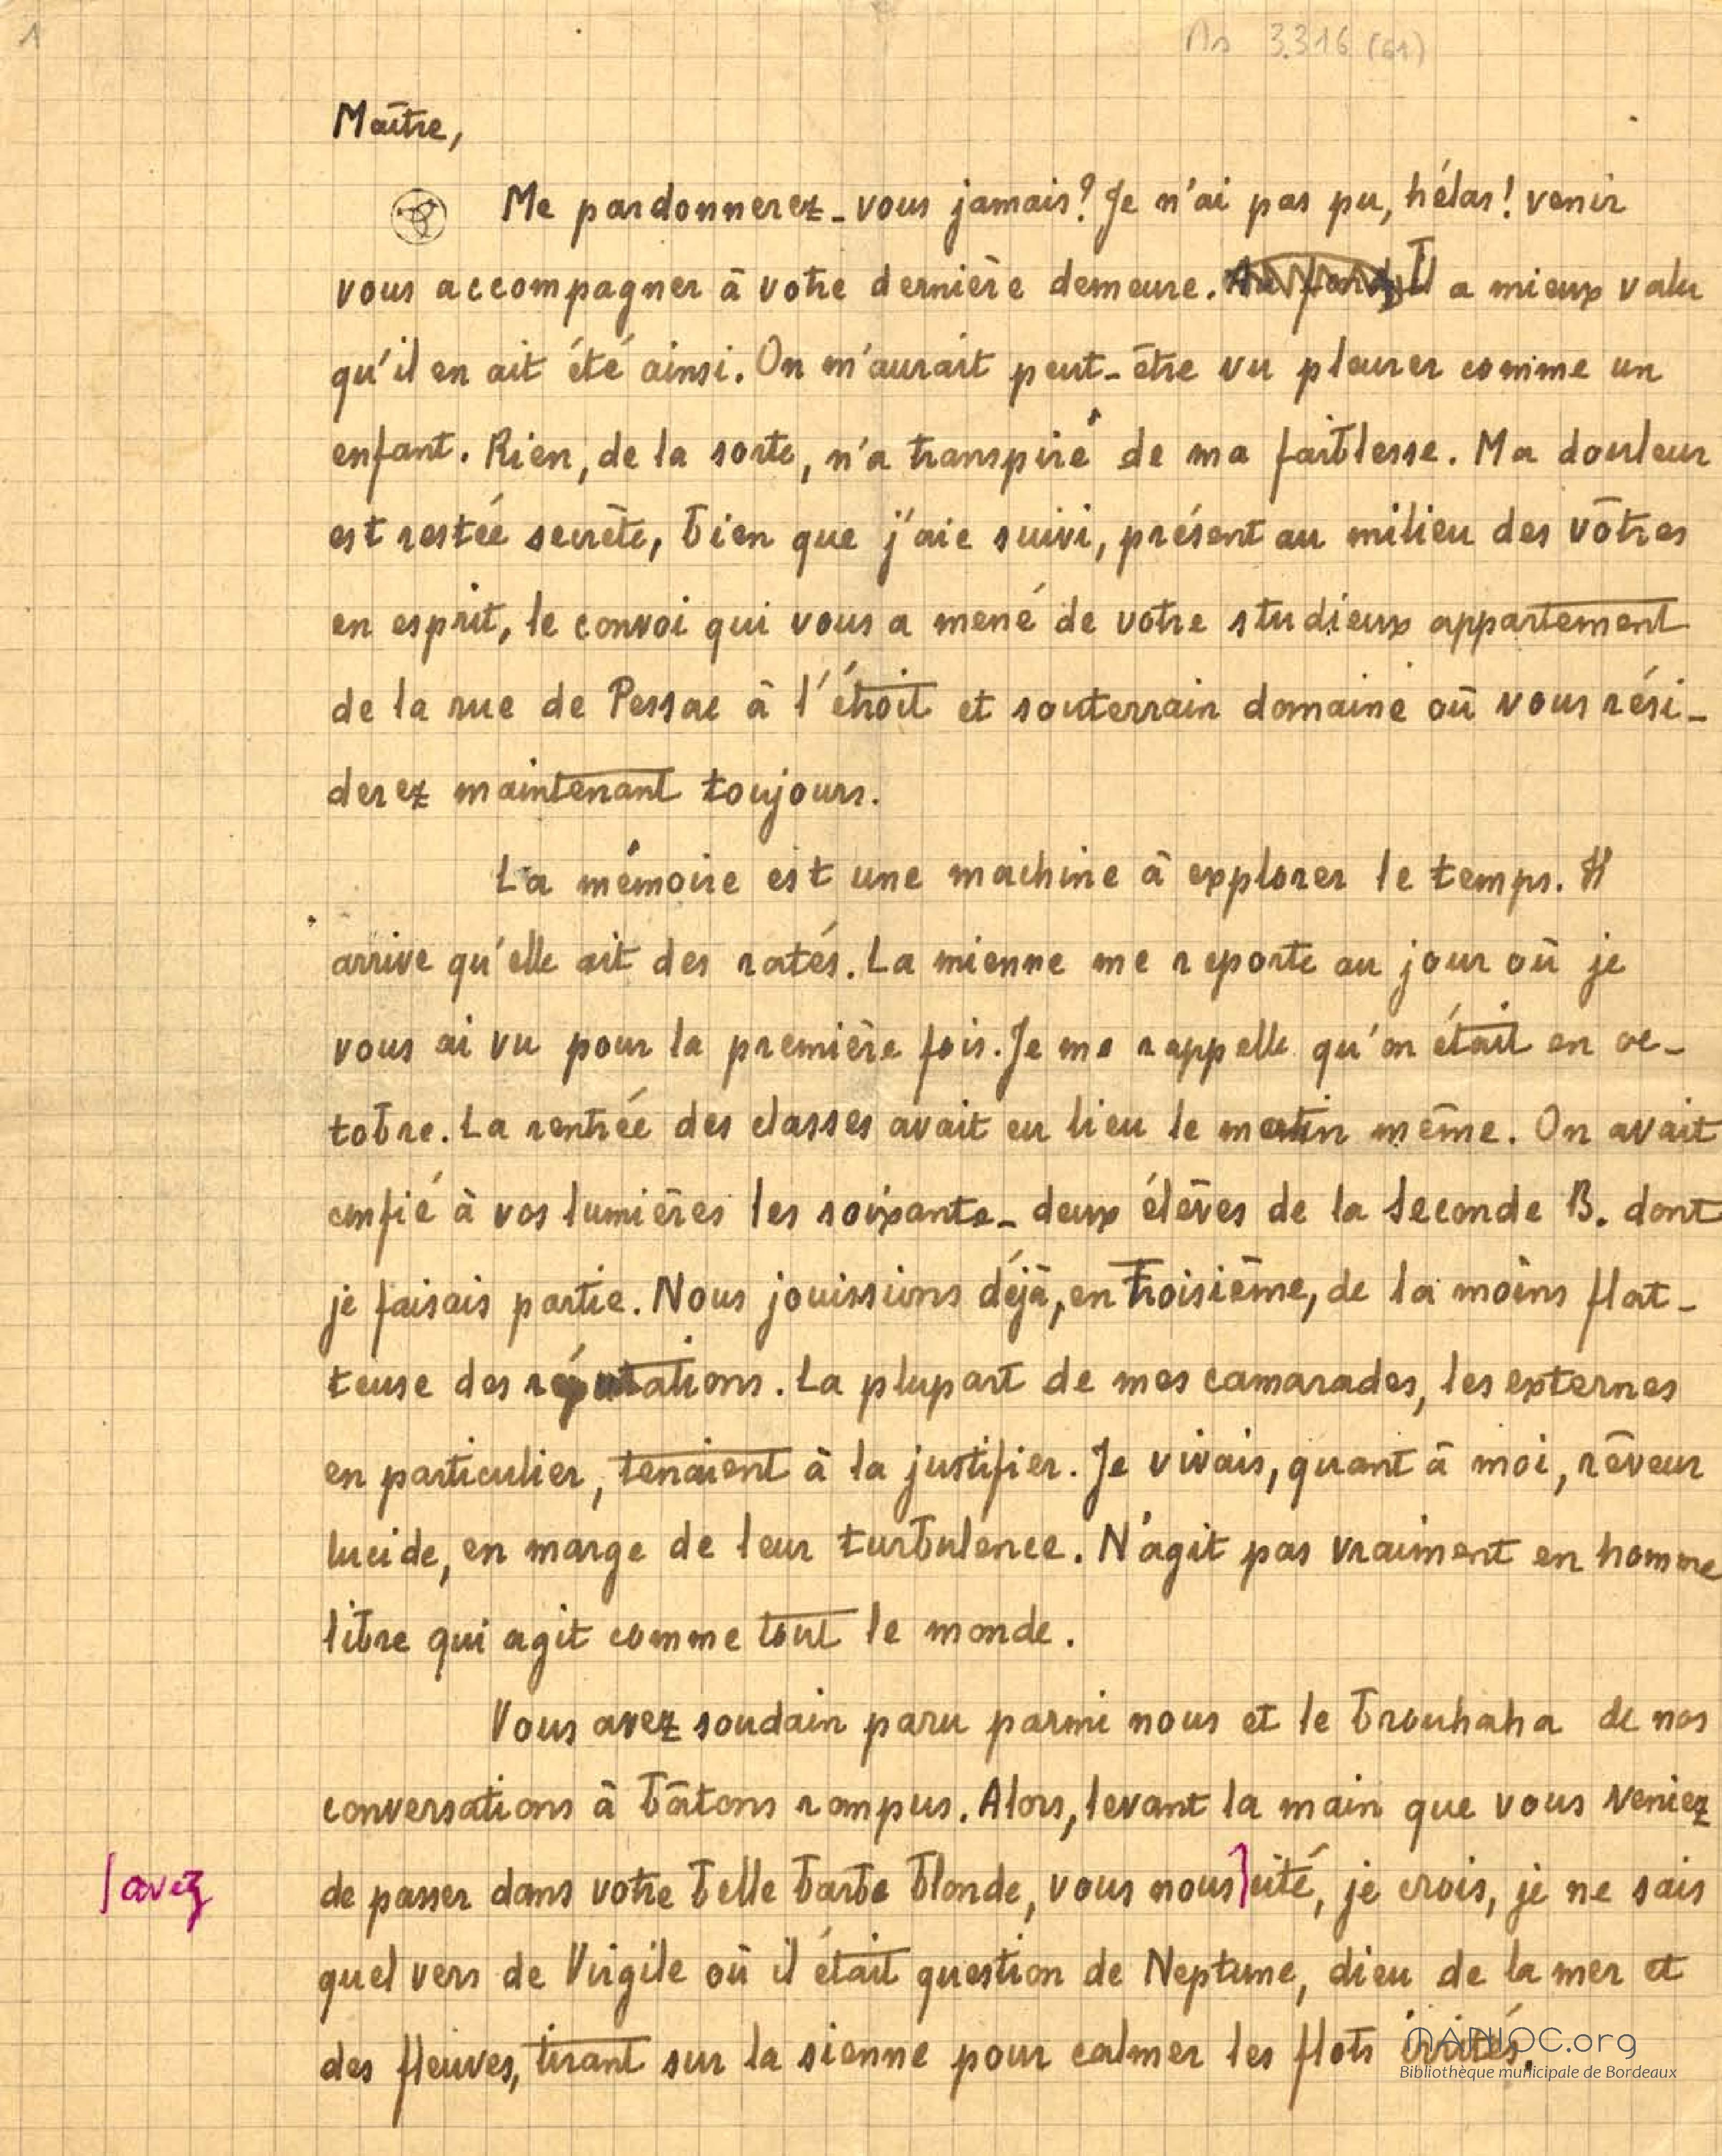 1
Ms 3.316 (61)
Maître,
Me pardonnerez-vous jamais? Je n'ai pas pu, hélas! venir
vous accompagner à votre dernière demeure. Il a mieux valu
qu'il en ait été ainsi. On m'aurait peut-être vu pleurer comme un
enfant. Rien, de la sorte, n'a transpiré de ma faiblesse. Ma douleur
est restée secrète, bien que j'aie suivi, présent au milieu des vôtres
en esprit, le convoi qui vous a mené de votre studieux appartement
de la rue de Pessac à l'étroit et souterrain domaine où vous rési-
derez maintenant toujours.
La mémoire est une machine à explorer le temps. Il
arrive qu'elle ait des ratés. La mienne me reporte au jour où je
vous ai vu pour la première fois. Je me rappelle qu'on était en oc-
tobre. La rentrée des classes avait eu lieu le matin même. On avait
confié à vos lumières les soixante-deux élèves de la Seconde B. dont
je faisais partie. Nous jouissions déjà, en Troisième, de la moins flat-
teuse des réputations. La plupart de mes camarades, les externes
en particulier, tenaient à la justifier. Je vivais, quant à moi, rêveur
lucide, en marge de leur turbulence. N'agit pas vraiment en homme
libre qui agit comme tout le monde.
Vous avez soudain paru parmi nous et le brouhaha de nos
conversations à bâtons rompus. Alors, levant la main que vous veniez
avez
de passer dans votre belle barbe blonde, vous nous cité, je crois, je ne sais
quel vers de Virgile où il était question de Neptune, dieu de la mer et
des fleuves, tirant sur la sienne pour calmer les flots irrités.
MANIOC.org
Bibliothèque municipale de Bordeaux